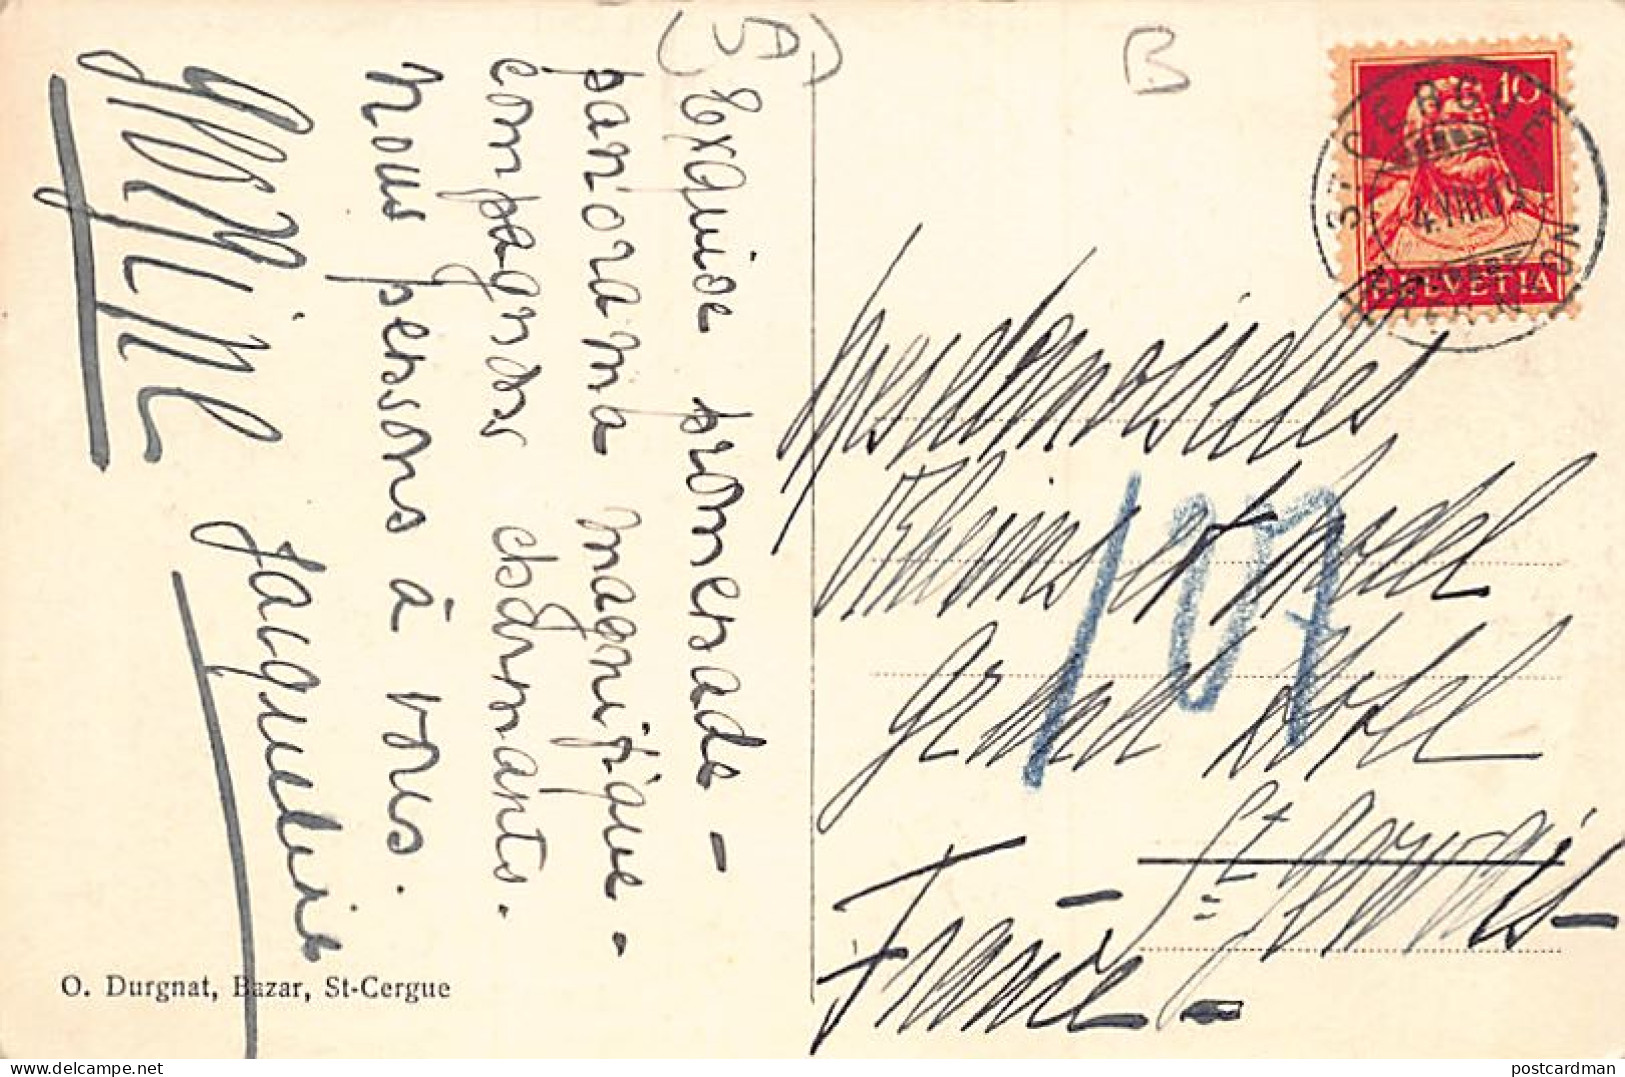 5A)
Exquise promenade -
panorama magnifique -
compagnons charmants.
Nous pensons à vous.
Jacqueline
B
10
HELVETIA
ST. CERGUE
4.VIII.19
Mesdemoiselles
Grand Hôtel
St Gervais -
- France -
107
O. Durgnat, Bazar, St-Cergue
postcardman